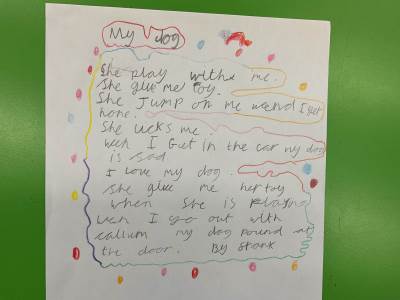 My dog
She play with me.
She give me toy.
She Jump on me wend I get
home.
She licks me.
wen I Get in the car my dog
is sad
I love my dog.
she give me her toy
when She is playing
wen I go out with
callum my dog pound at
the door. By